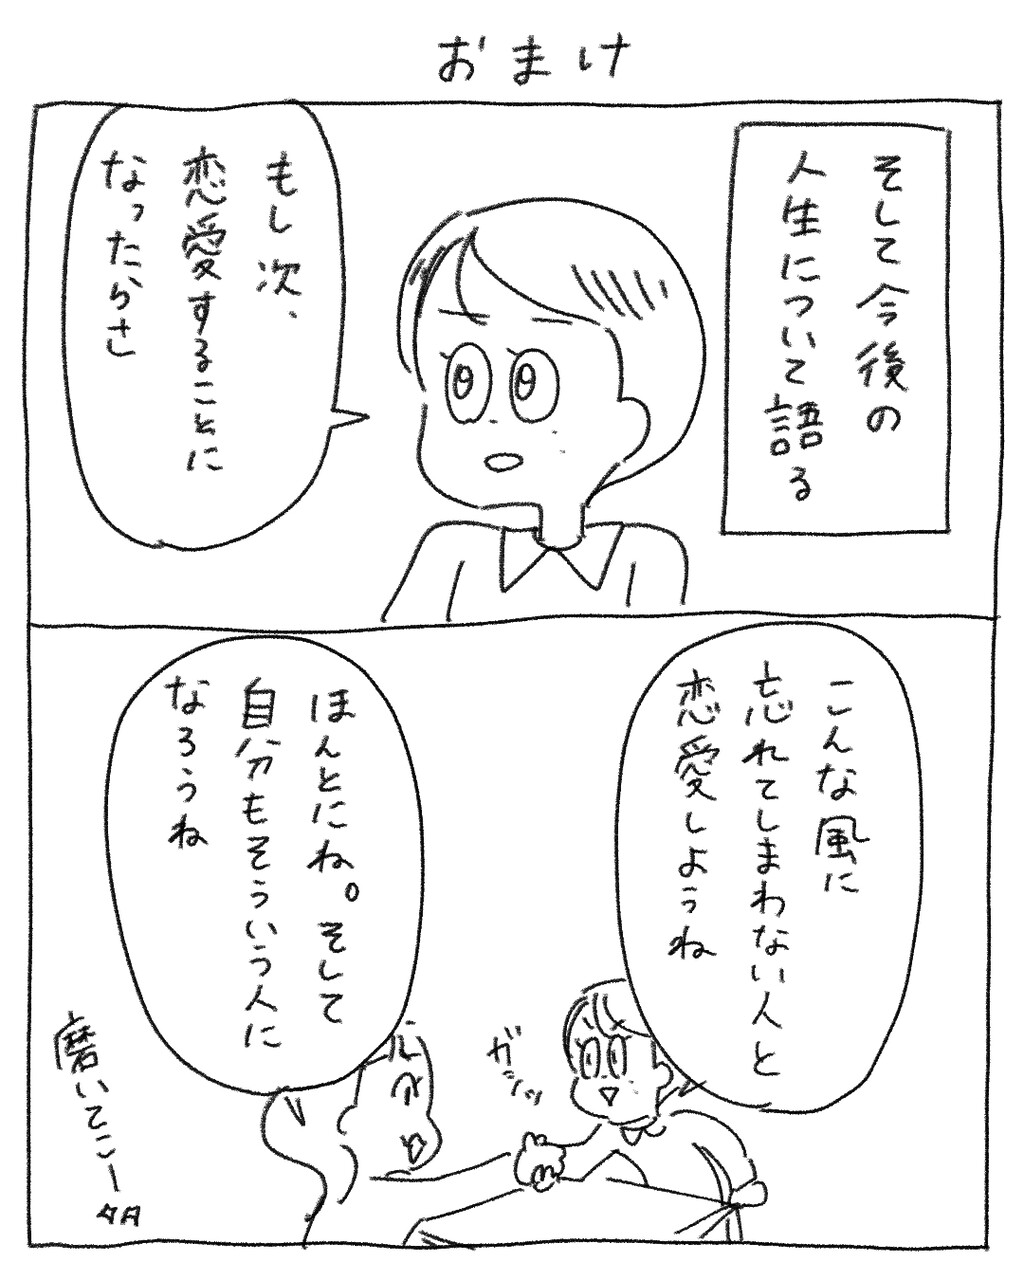 おまけ
そして今後の
人生について語る
もし次、
恋愛することに
なったらさ
こんな風に
忘れてしまわない人と
恋愛しようね
ガシッ
ほんとにね。そして
自分もそういう人に
なろうね
磨いてこー